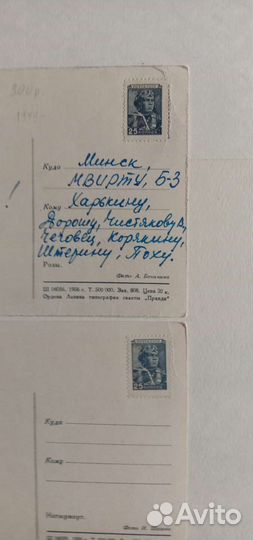 300 р
25
Куда Минск,
МВИРТУ, Б-3
Кому Харькину,
Дорошу, Чистякову А,
Чеговец, Корякину,
Штерину, Поху.
Фото А.
1956 г. Т. 500 000. Зак. 808. Цена 20 к.
Ордена Ленина типография газеты „Правда“
25
Куда
Кому
Фото И.
Avito